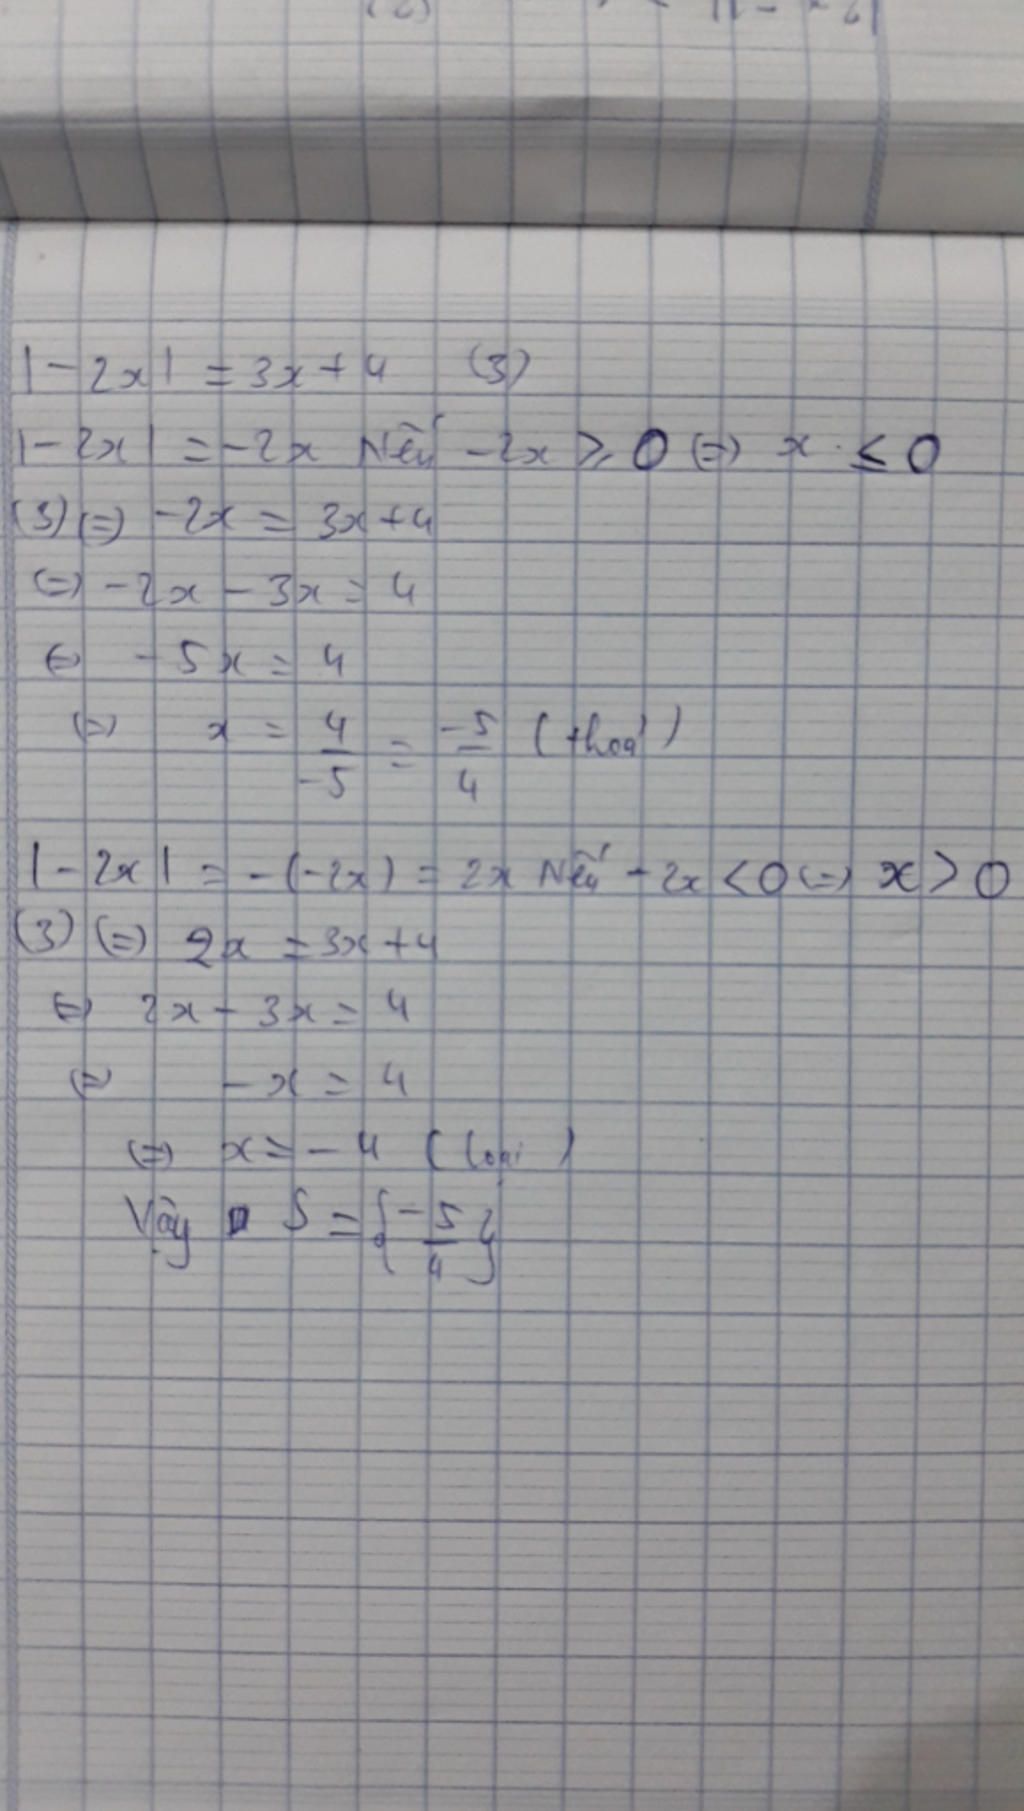 |-2x| = 3x+4 (3)
|-2x| = -2x Nếu -2x ≥ 0 (=) x ≤ 0
(3) (=) -2x = 3x+4
(=) -2x - 3x = 4
(=) -5x = 4
(=) x = 4/-5 = -5/4 (thoả)
|-2x| = -(-2x) = 2x Nếu -2x < 0 (=) x > 0
(3) (=) 2x = 3x+4
(=) 2x - 3x = 4
(=) -x = 4
(=) x = -4 (loại)
Vậy S = {-5/4}